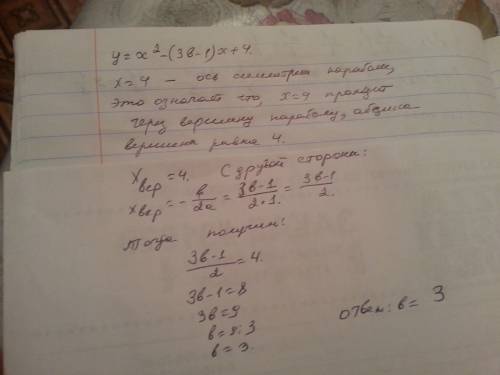 y = x² - (3в-1)x + 4.
x = 4 — ось симметрии параболы,
это означает что, x=4 проходит
через вершину параболы, абциса
вершина равна 4.
x вер = 4. С другой стороны:
x вер = - в/2a = 3в-1/2·1 = 3в-1/2.
тогда получим:
3в-1/2 = 4.
3в-1=8
3в=9
в=9:3
в=3.
ответ: в= 3